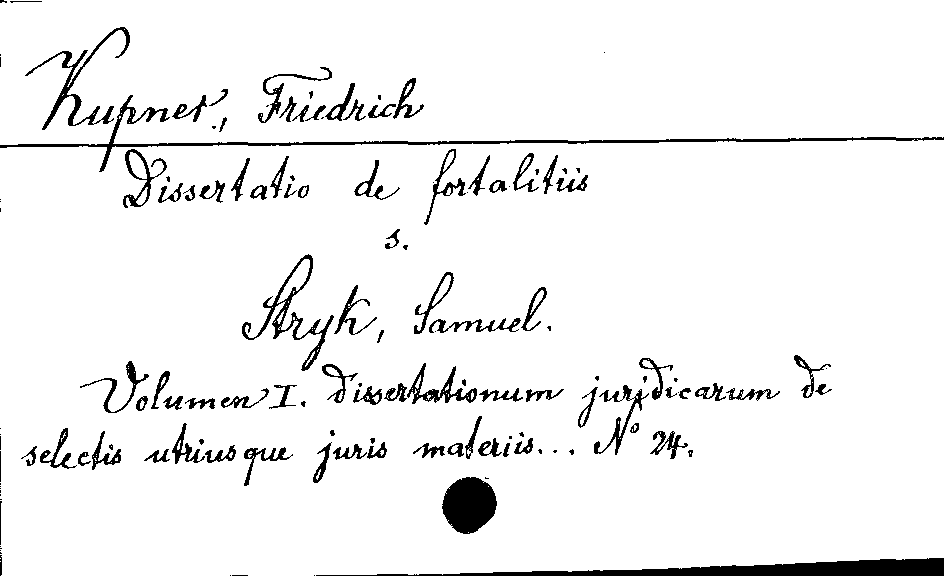 Kupner, Friedrich
Dissertatio de fortalitiis
s.
Stryk, Samuel.
Volumen I. dissertationum juridicarum de
selectis utriusque juris materiis... No 24.